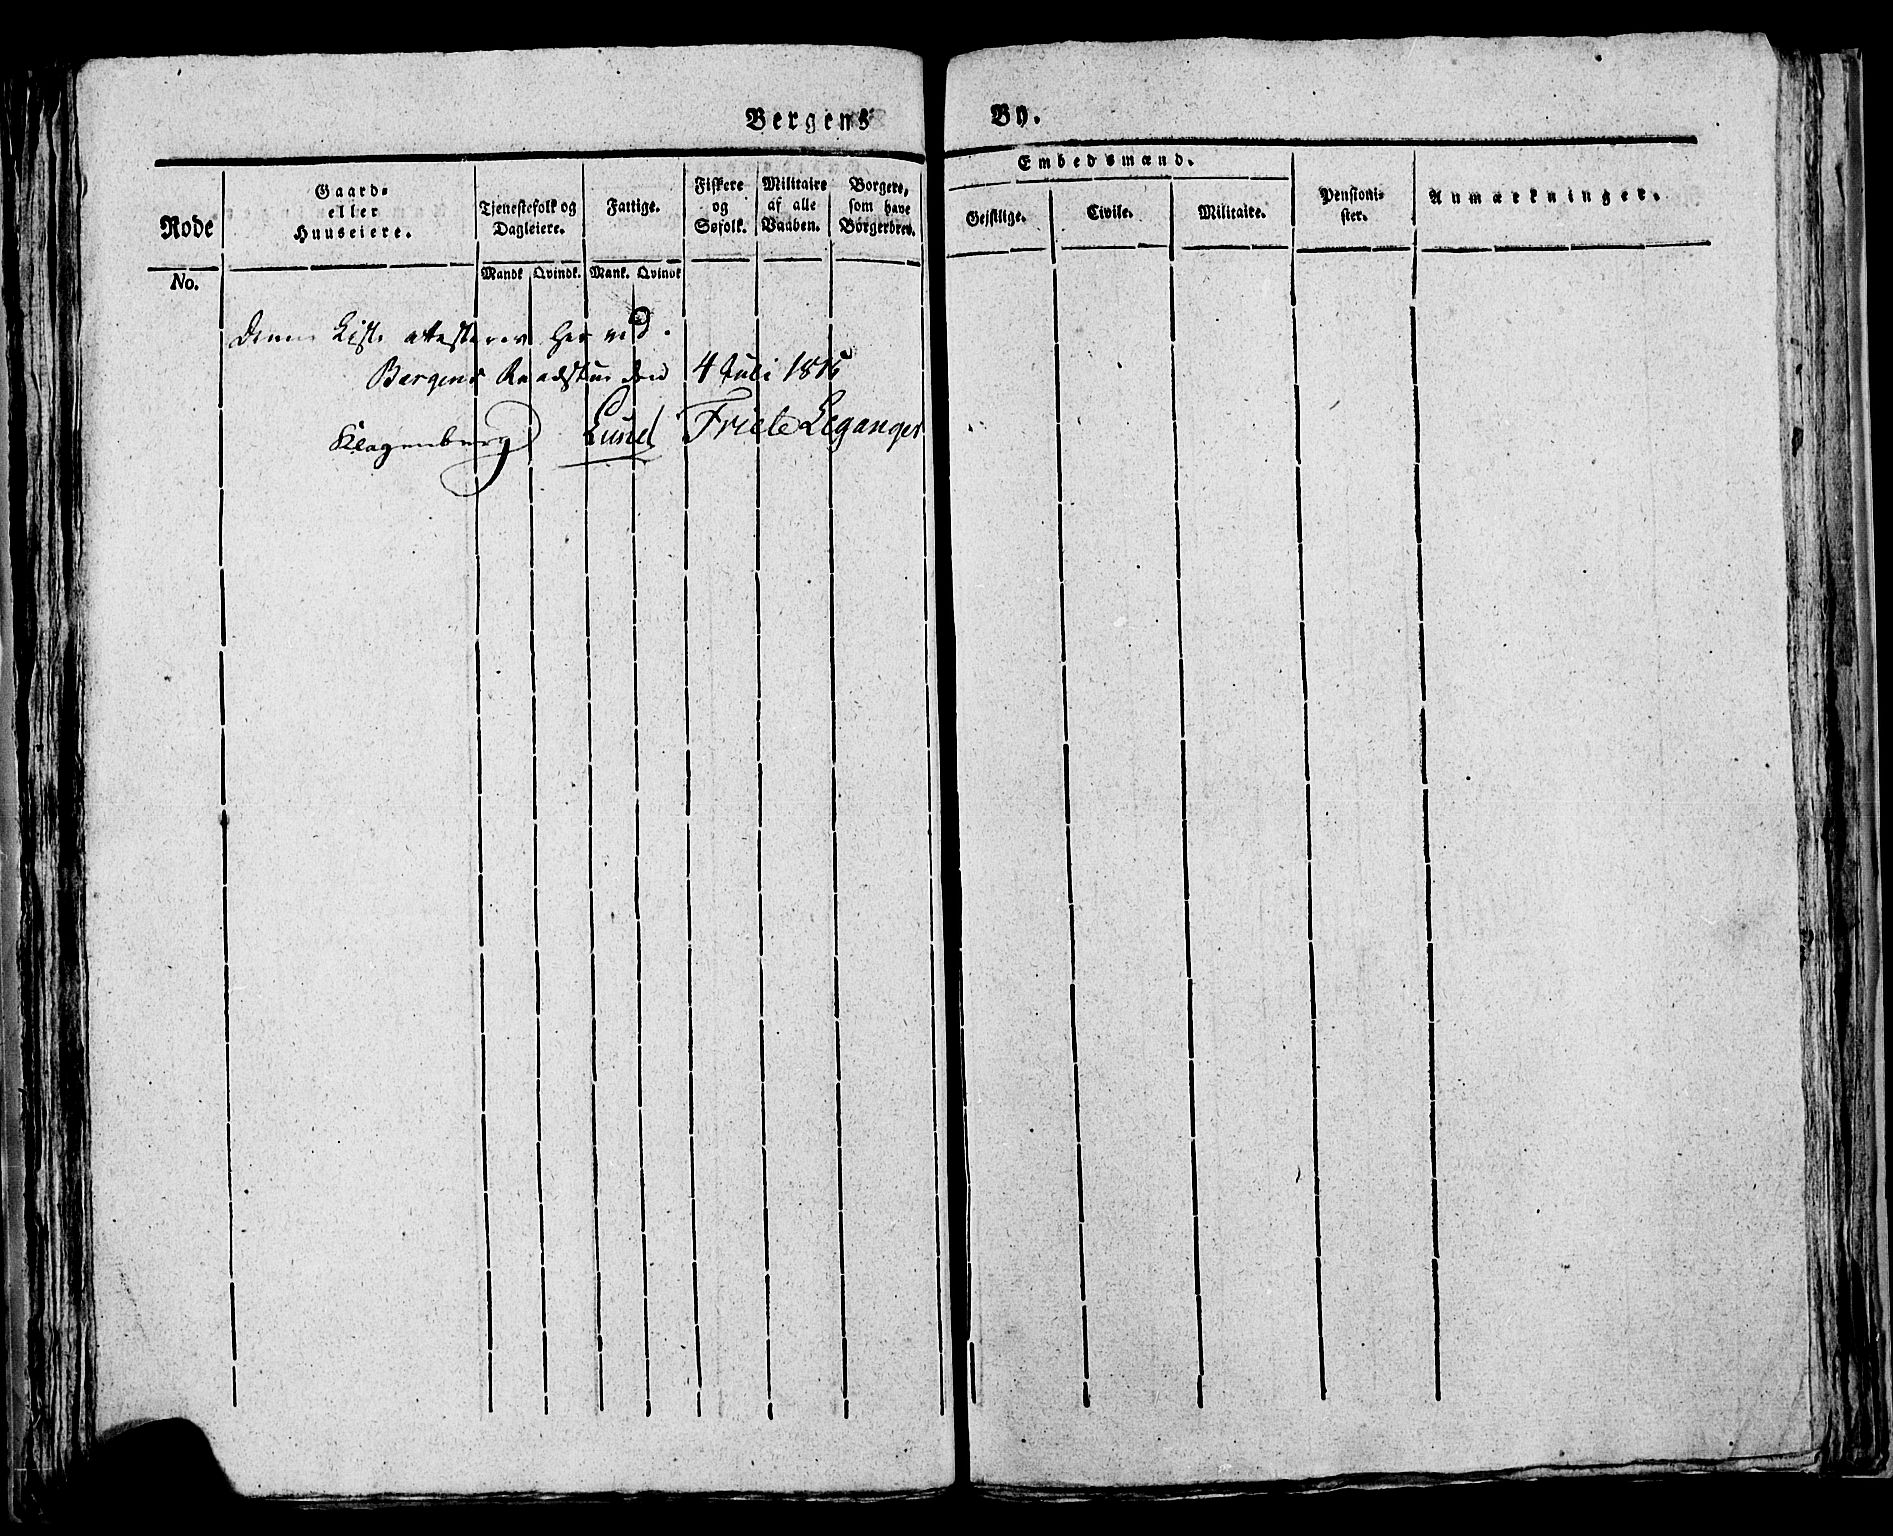 Bergens By.
Rode
No.
Gaard-
eller
Huuseiere.
Tjenestefolk og
Dagleiere.
Mandk Qvindk.
Fattige.
Mank. Qvindk
Fiskere
og
Søfolk.
Militaire
af alle
Vaaben.
Borgere,
som have
Borgerbrev.
Embedsmænd.
Geistlige.
Civile.
Militaire.
Pensioni-
ster.
Anmærkninger.
Denne Liste attesteres her ved.
Bergens Raadstue den 4 Juli 1815
Klagenberg Lund Friele Leganger